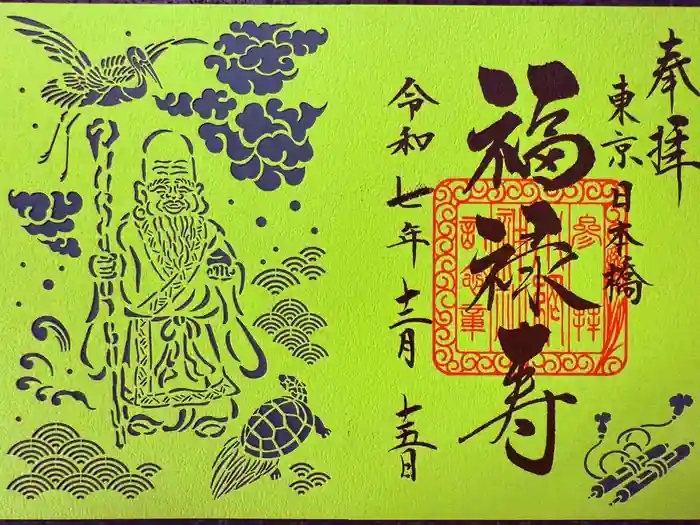 奉拝
東京日本橋
福禄寿
令和七年十二月十五日